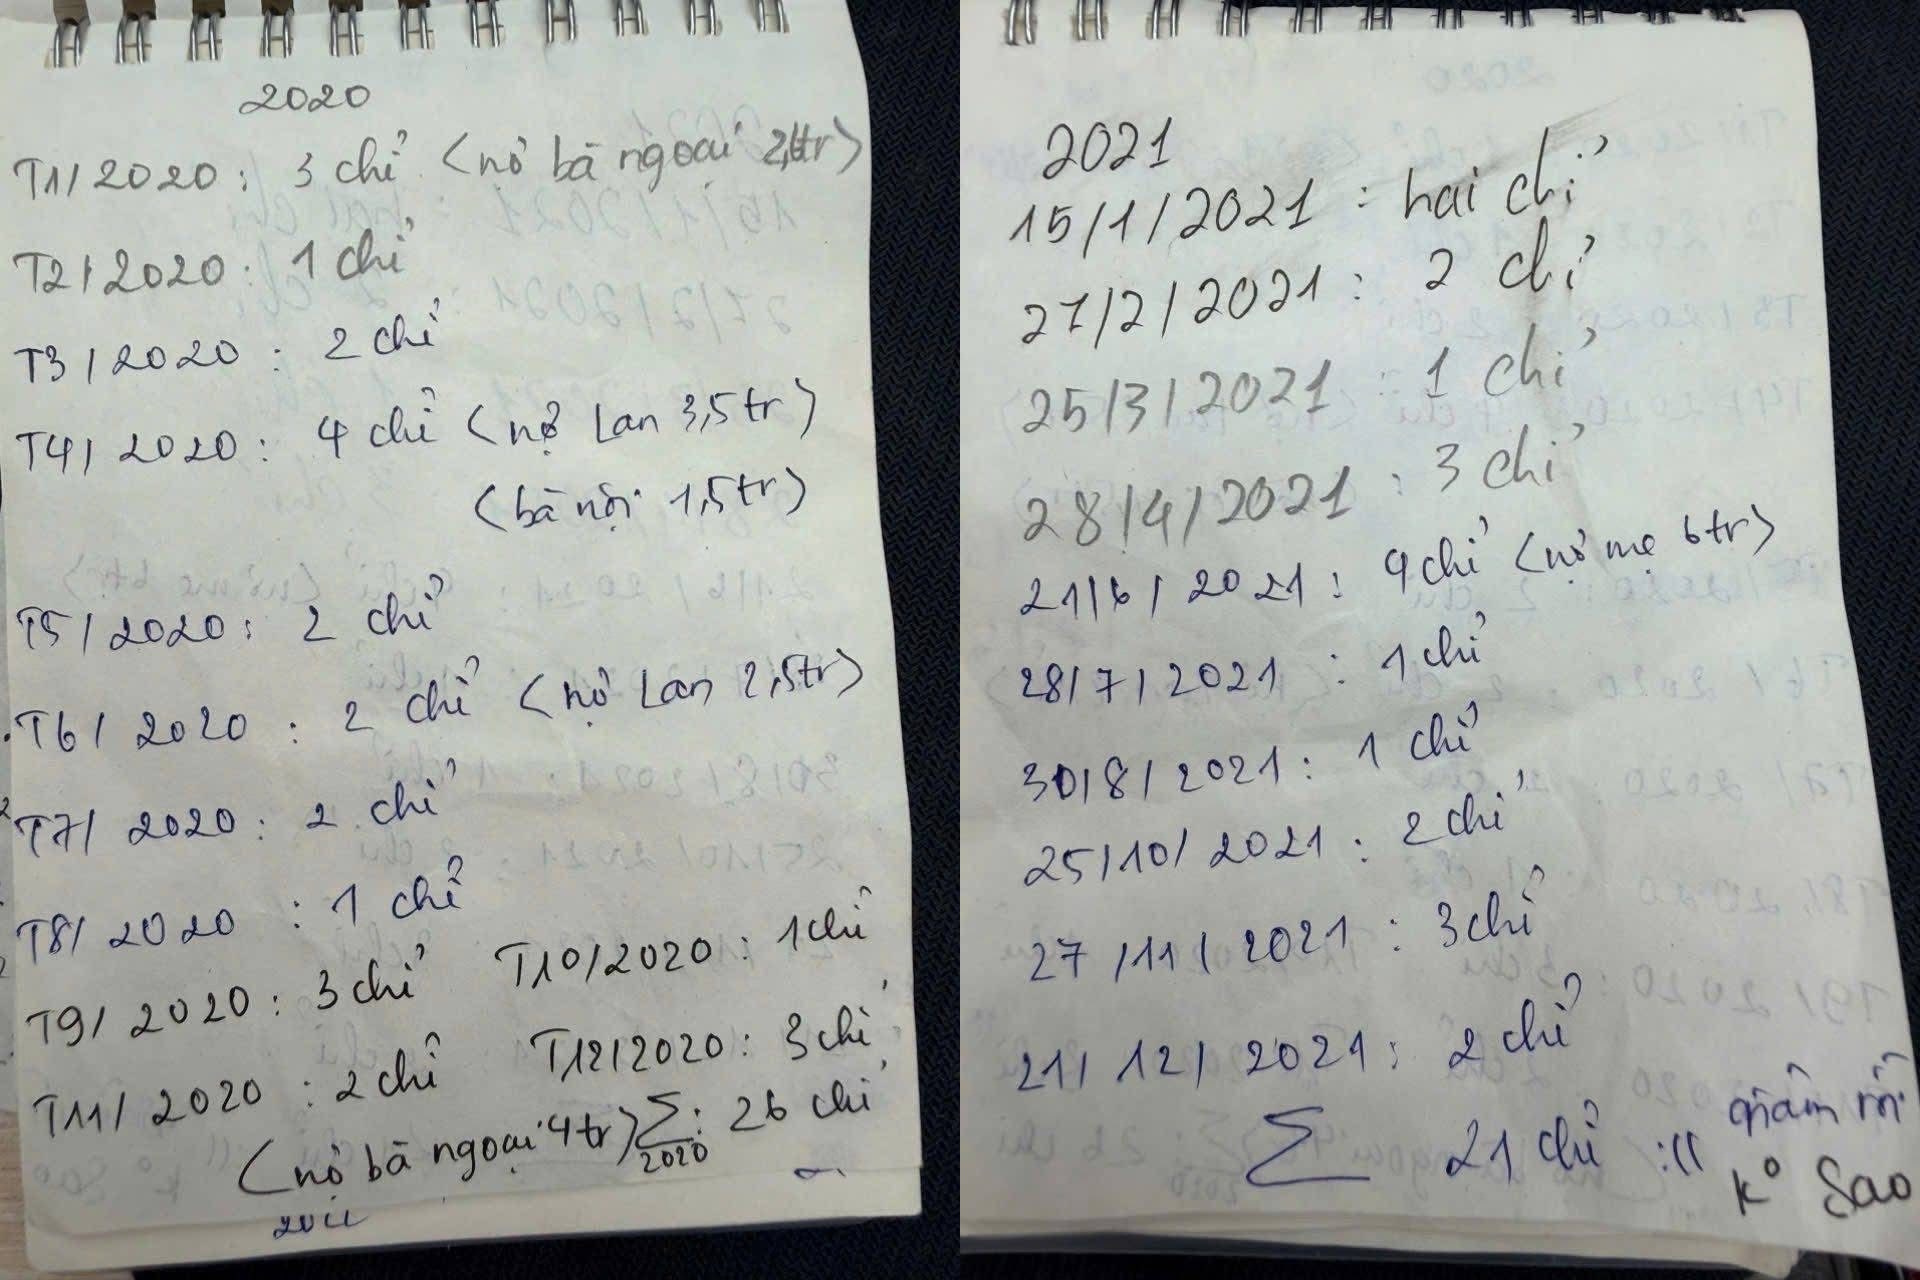 2020
T1/2020: 3 chỉ (nợ bà ngoại tr)
T2/2020: 1 chỉ
T3/2020: 2 chỉ
T4/2020: 4 chỉ (nợ Lan 3,5tr)
(bà nội 1,5tr)
T5/2020: 2 chỉ
T6/2020: 2 chỉ (nợ Lan 2,5tr)
T7/2020: 2 chỉ
T8/2020: 1 chỉ
T9/2020: 3 chỉ T10/2020: 1 chỉ
T11/2020: 2 chỉ T12/2020: 3 chỉ
(nợ bà ngoại 4tr) Σ 2020: 26 chỉ
2021
15/1/2021: hai chỉ
27/2/2021: 2 chỉ
25/3/2021: 1 chỉ
28/4/2021: 3 chỉ
21/6/2021: 4 chỉ (nợ mẹ 6tr)
28/7/2021: 1 chỉ
30/8/2021: 1 chỉ
25/10/2021: 2 chỉ
27/11/2021: 3 chỉ
21/12/2021: 2 chỉ
Σ 21 chỉ :(( giảm rồi
k° sao